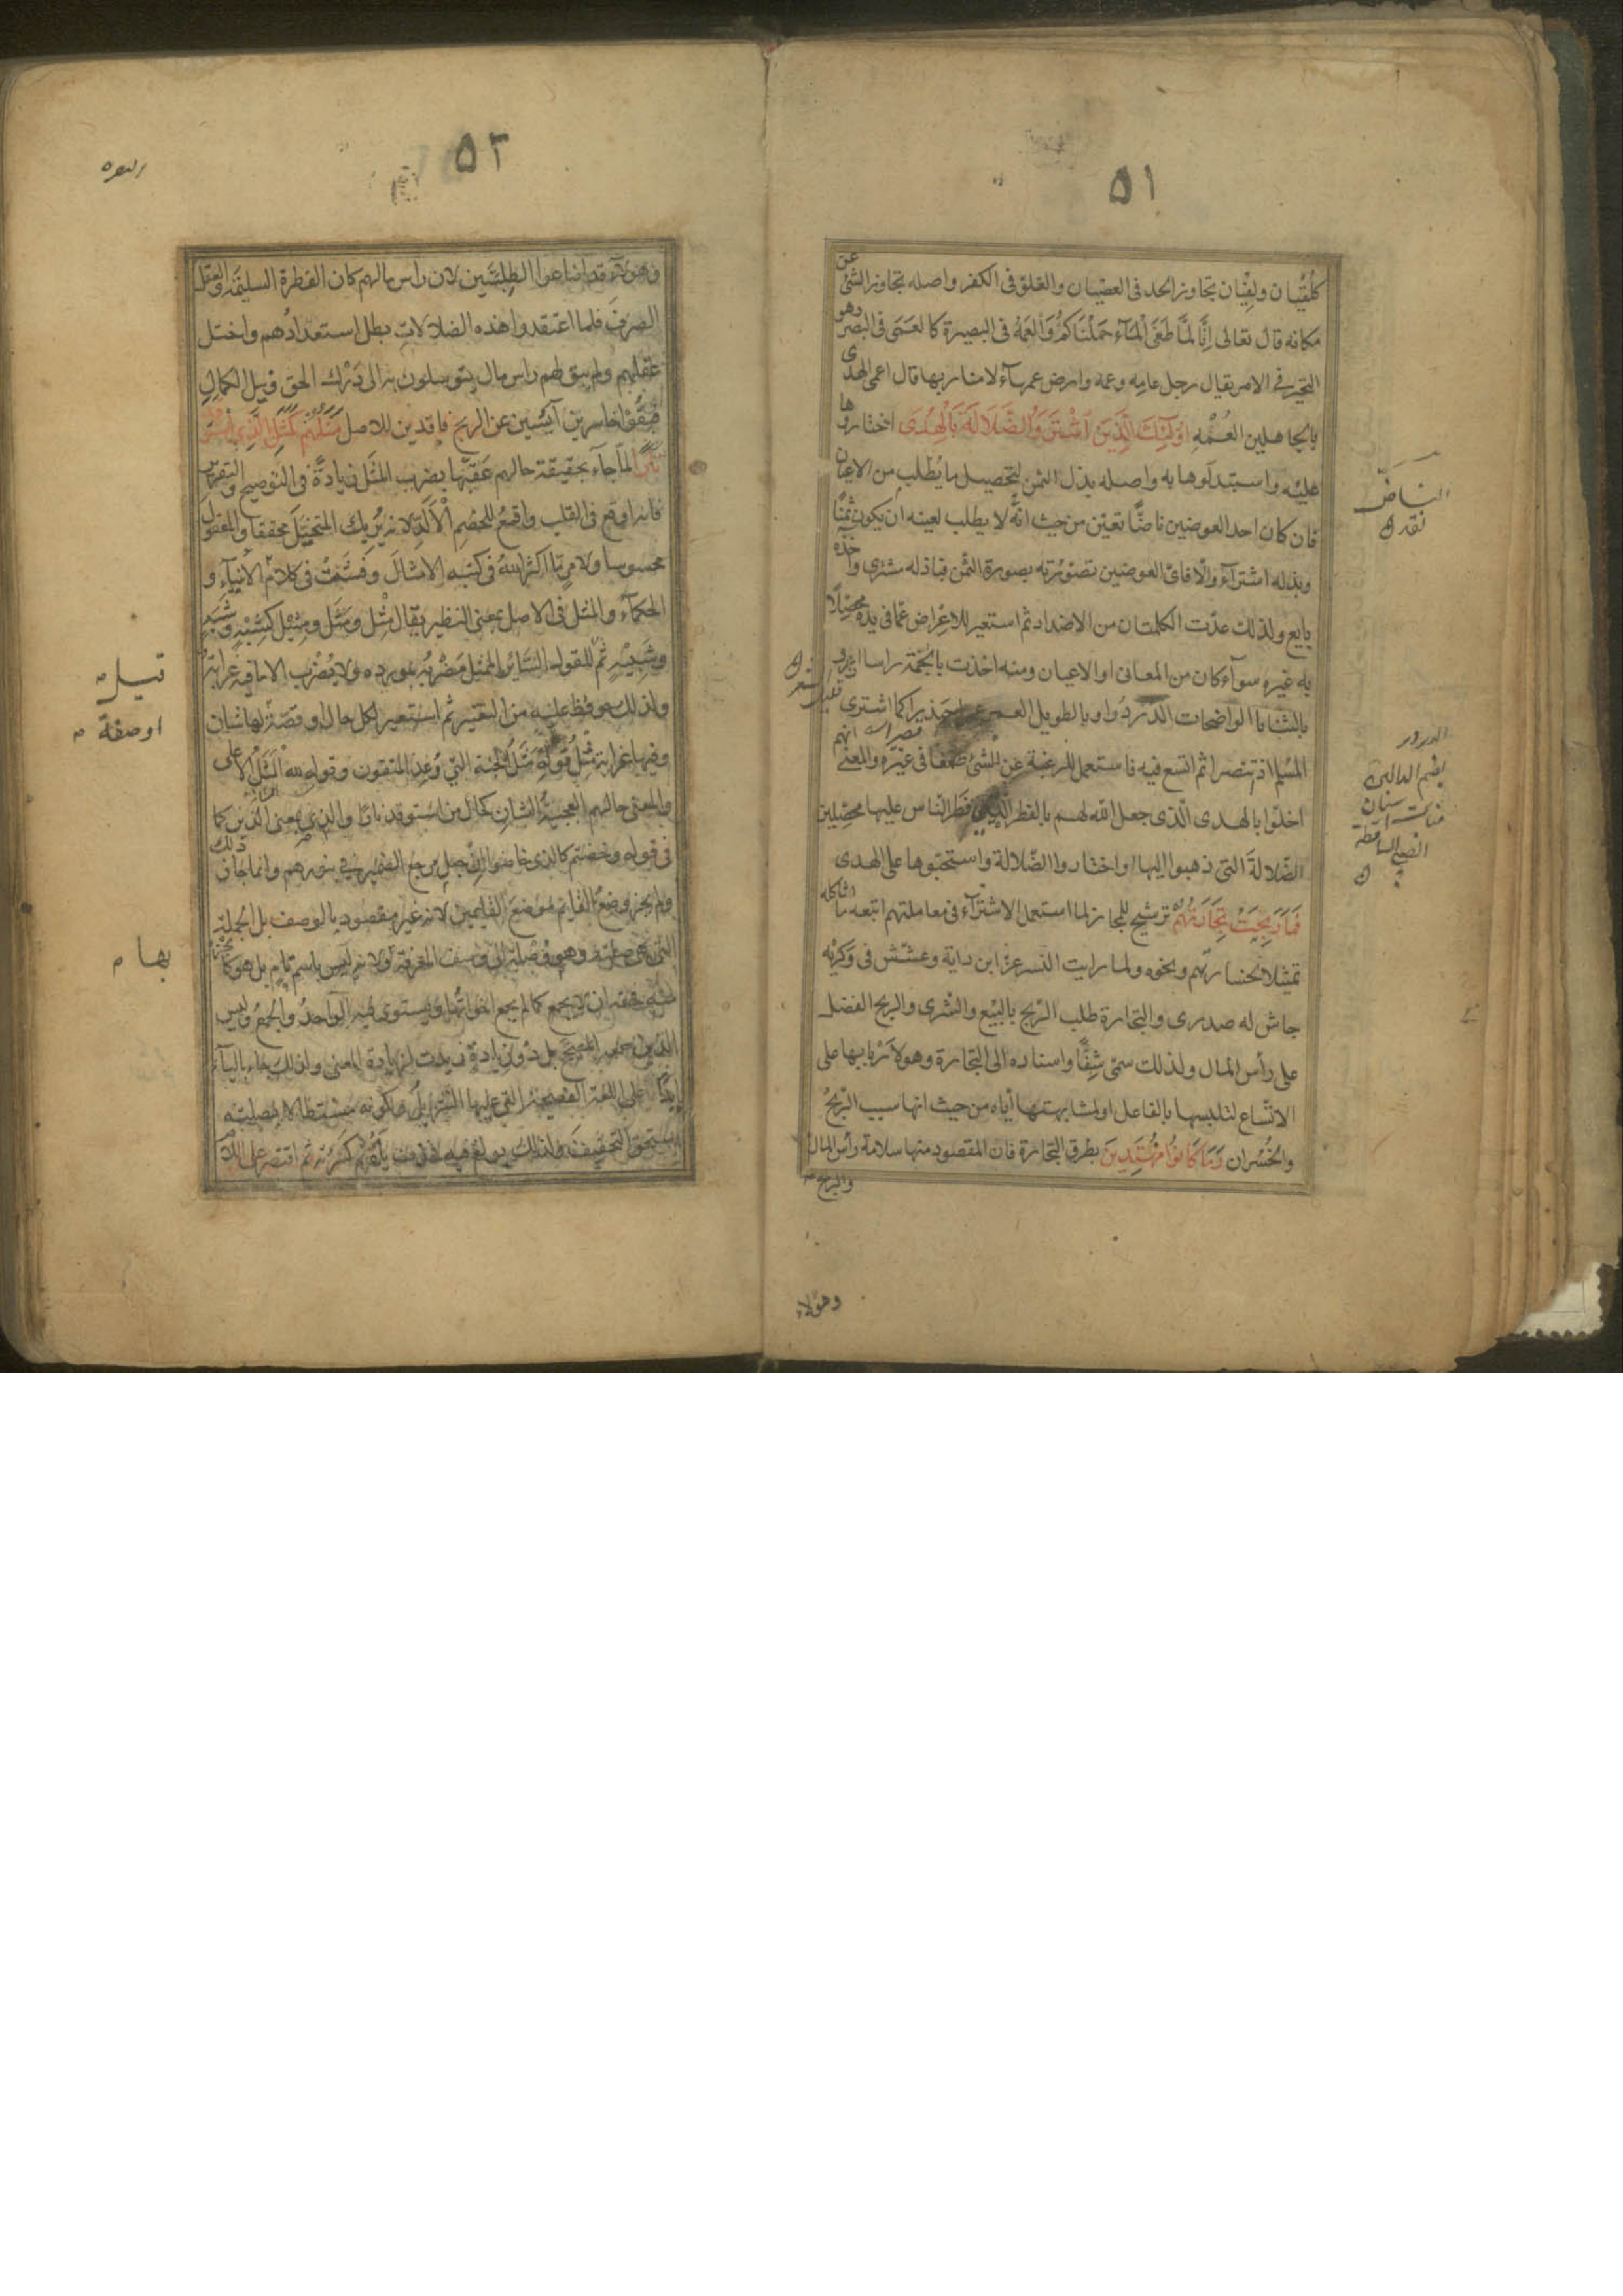 ٥١
كلُقيان ولِقِيان تجاوز الحد في العصيان والغلو في الكفر واصله تجاوز الشئ عن
مكانه قال تعالى اِنَّا لمَّا طَغَى الْمَآء حَمَلْنَاكُمْ وَالعَمَهُ في البصيرة كالعَمَى في البصر وهو
التحير في الامر يقال رجل عامِه وعمه وارض عمهآء لا منار بها قال اعمى الهدى
بالجاهلين العُمَّهِ اوُلٰٓئِكَ الَّذِينَ اشْتَرَوُا الضَّلَالَةَ بِالْهُدَى اختاروها
عليْه واستبدلَوها به واصله بذل الثمن لتحصيل ما يُطلب من الاعيان
فان كان احد العوضين ناضًّا تعيّن من حيث انّه لا يطلب لعينه ان يكون ثمنًا
وبذله اشترآء والّا فاىّ العوضين تصوّرته بصورة الثمن فباذله مشترى وآخذه
بايع ولذلك عدّت الكلمتان من الاضداد ثم استعير للاعراض عمّا في يده محصّلًا
به غيره سوآء كان من المعانى او الاعيان ومنه اخذت بالجمّة راسا ازعرا
بالثنايا الواضحات الدُّردُرا وبالطويل العمر عمرا جيذرا كما اشترى
المسْلم اذ تنصرا ثم اتسع فيه فاستعمل للرغبة عن الشئ طمعا في غيره والمعنى انهم
اخلّوا بالهدى الّذى جعل اللّه لهم بالفطرة التي فَطَر النّاس عليها محصِّلين
الضّلالةَ التى ذهبوا اليها او اختاروا الضّلالة واستحبّوها على الهدى
فَمَا رَبِحَتْ تِجَارَتُهُمْ ترشيح للمجاز لما استعمل الاشترآء في معاملتهم اتبعه ما يشاكله
تمثيلا لخسارتهم ونحوه ولما رايت النسر عزّ ابن داية وعشّش في وَكْرَيْه
جاش له صدرى والتجارة طلب الرّبح بالبيْع والشرى والربح الفضل
على رأس المال ولذلك سمّى شِفًّا واسناده الى التجارة وهو لارْبابها على
الاتّساع لتلبسها بالفاعل او لمشابهتها ايّاه من حيث انها سبب الربْحُ
والخُسْران وَمَا كَانُوا مُهْتَدِينَ بطرق التجارة فان المقصود منها سلامة رأس المال
والربح
وهؤلاء
الناضّ
نقد
الدردر
بضم الدالين
منابت اسنان
الصبي
٥٢
البقره
وهولآء قد اضاعوا الطِلبتَين لان راس مالهم كان الفطرة السليمة والعقل
الصرفَ فلما اعتقدوا هذه الضلالاتِ بطل استعدادُهم واختل
عقلهم ولم يبق لهم راس مال يتوسلون به الى دَرْك الحق ونيل الكمالِ
فبقُوْا خاسرين آيسين عن الربح فاقدين للاصل مَثَلُهُمْ كَمَثَلِ الَّذِي اسْتَوْقَدَ
نَارًا لمّا جآء بحقيقة حالهم عَقبّها بضرب المثَل زيادةً في التوضيح والتقرير
فانه اوقع في القلب واقمعُ للخصْمِ الْاَلَدِّ لانه يُريك المتخيَّلَ محققا والمعقول
محسوسا ولامرٍ مّا اكثر اللّهُ في كتبه الامثالَ وفَشَتْ في كلام الانبيآء و
الحكمآء والمثل في الاصل بمعنى النظير يقال مِثْل ومَثَل ومثيْل كشِبْهٍ وشَبَهٍ
وشبيْهٍ ثم للقول السّائر الممثل مَضْربُه بمورده ولا يُضْرب الا ما فيه غرابة
ولذلك حوفظ عليه من التغيير ثم استعير لكل حال او قصّة لها شان
وفيها غرابة مثلُ قوله مَثَلُ الجنة التي وُعِدَ المتقون وقوله وللّه الْمَثَلُ الاعلى
والمعنى حالهم العجيبةُ الشانِ كحال من استوقد نارًا والذى بمعنى الذين كما
في قوله وخضتم كالذى خاضوا ان جعل مرجع الضمير في بنورهم وانما جاز ذلك
ولم يجز وضعُ القايم موضعَ القايمين لانه غير مقصود بالوصف بل الجملة
التي هى صلته وهو وُصْلة الى وصف المعرفة ولانه ليس باسم تام بل هو كالجزء
منه فحقه ان لا يجمع كما لم يجمع اخواتُها ويستوى فيه الواحدُ والجمعُ وليس
الذين جمعه المصحَّح بل ذو زيادة زيدت لزيادة المعنى ولذلك جاء باليآء
ابدًا على اللغة الفصيحة التى عليها التنزيلُ ولكونه مستطالا بصلته
استحق التخفيفَ ولذلك بولغ فيه فحذف ياؤه ثم كسرته ثم اقتصر على اللام
قيل
او صفة
بها